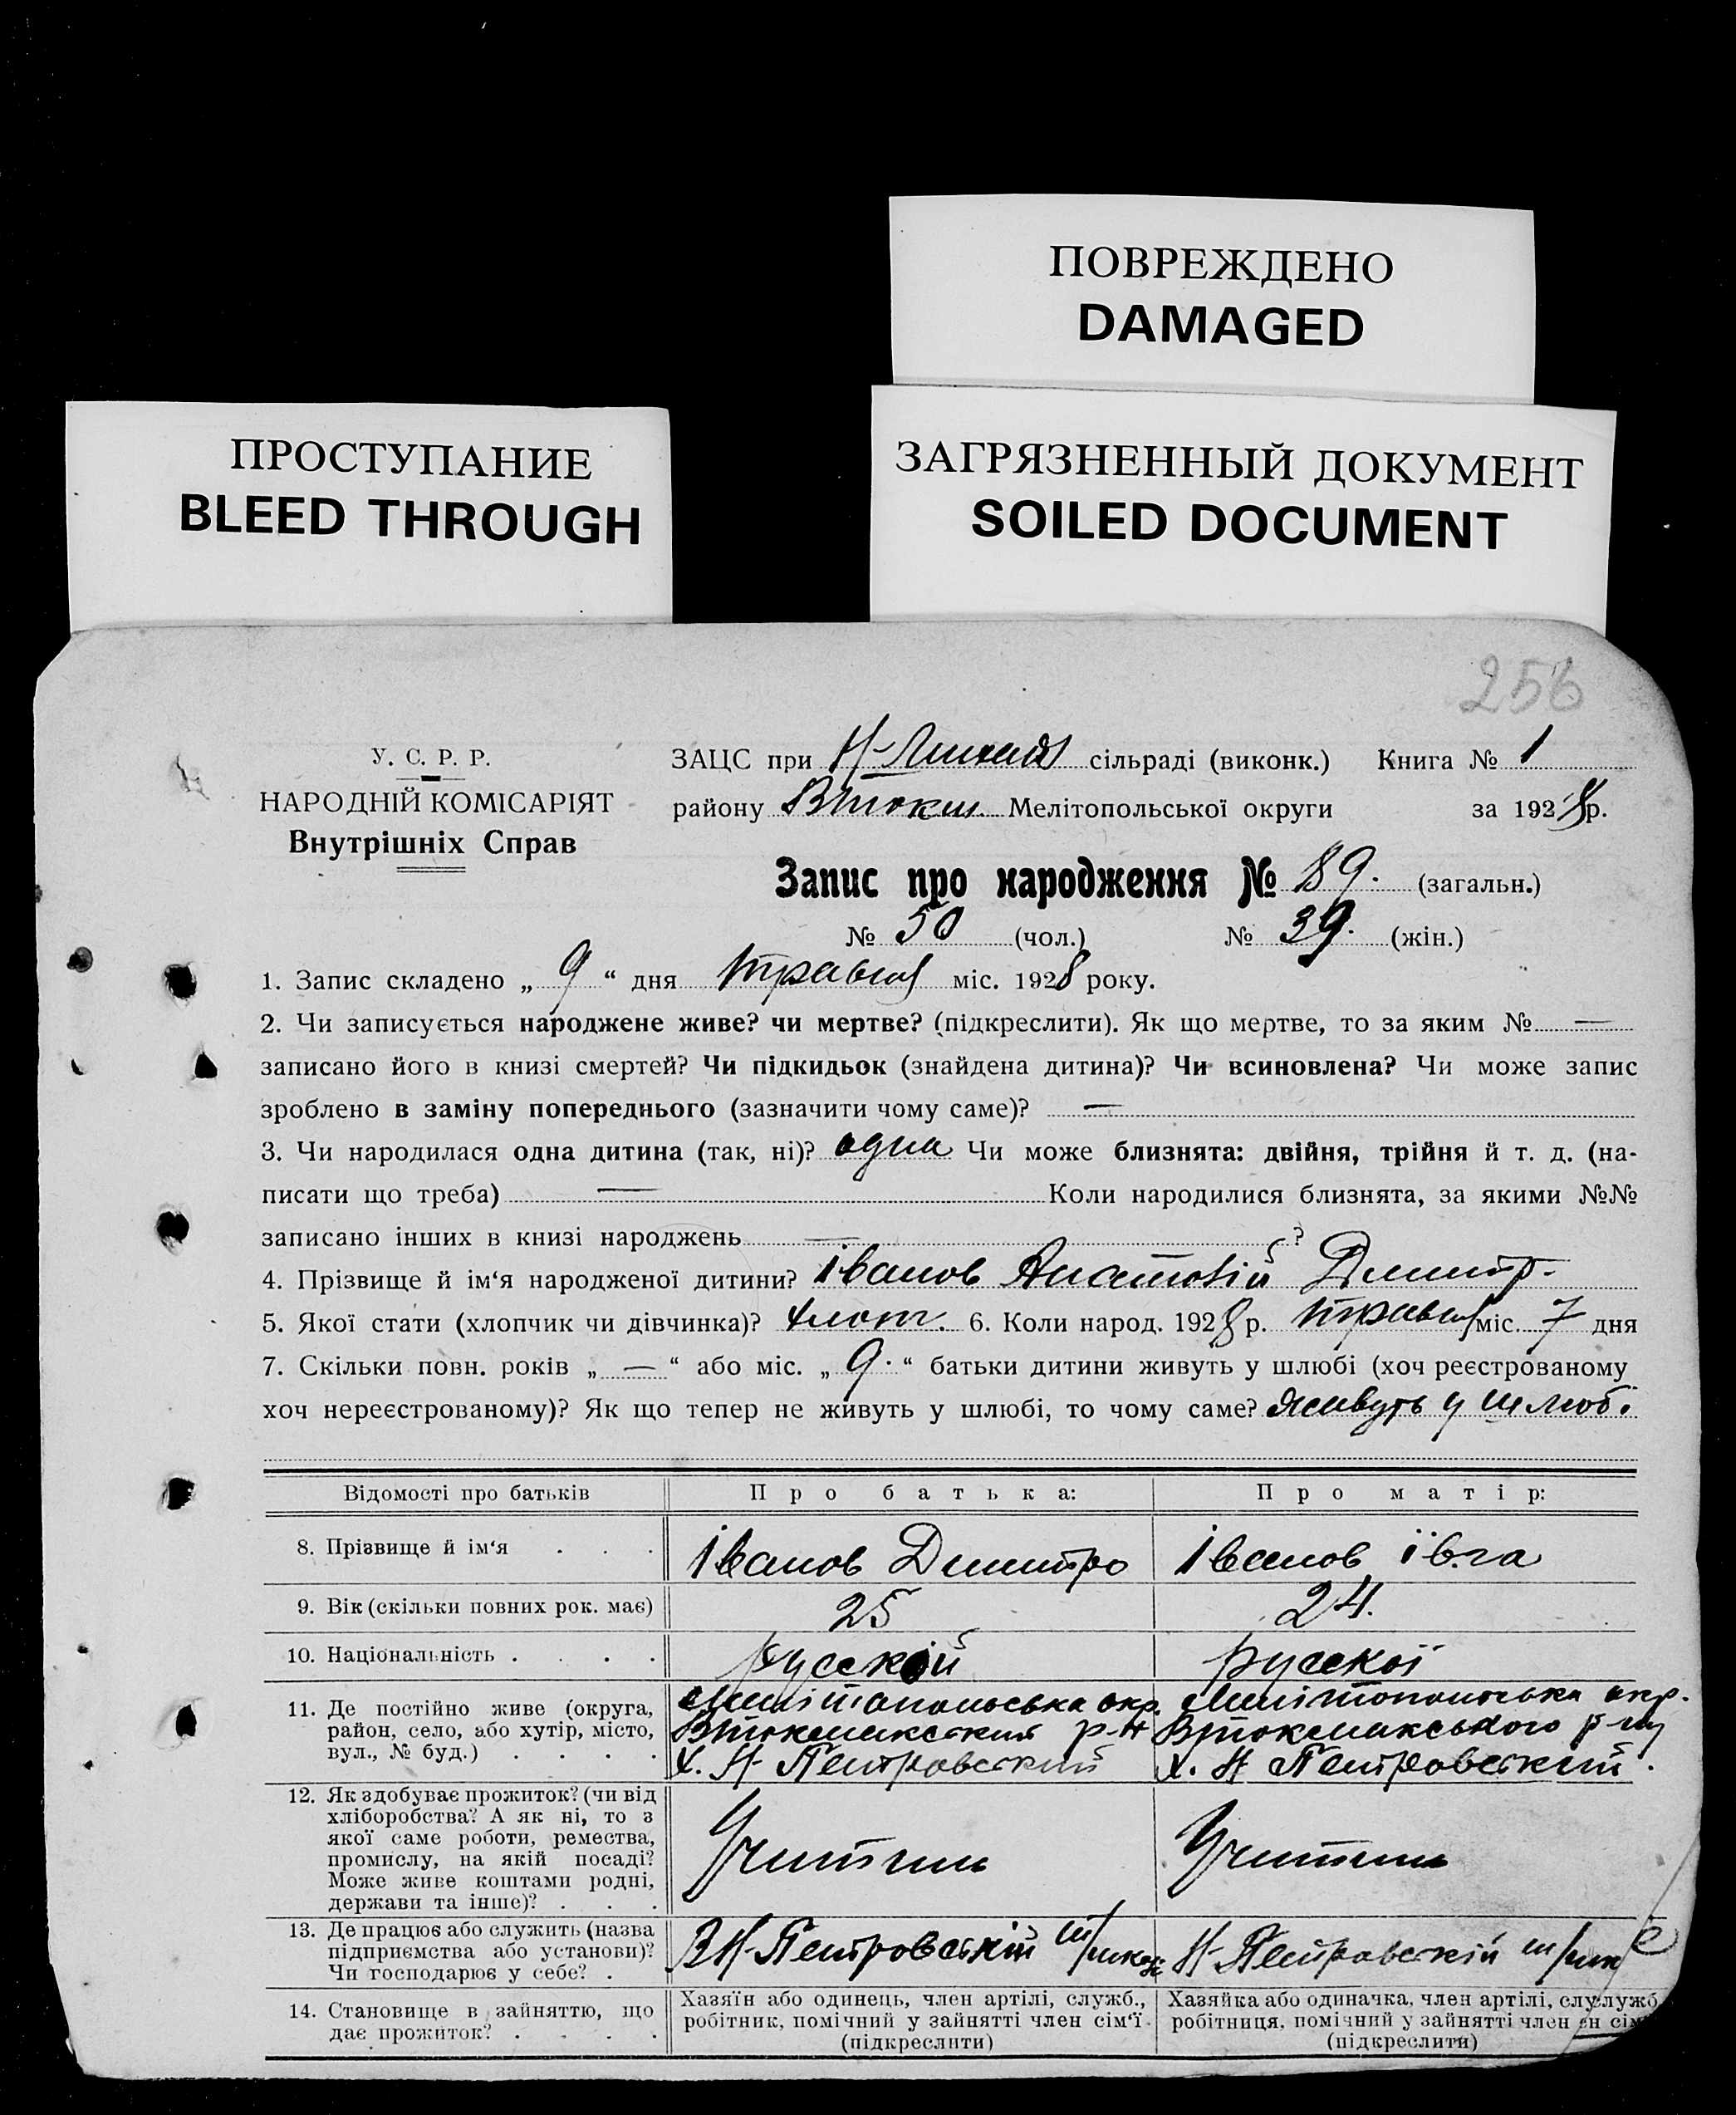 ПОВРЕЖДЕНО
DAMAGED
ПРОСТУПАНИЕ
BLEED THROUGH
ЗАГРЯЗНЕННЫЙ ДОКУМЕНТ
SOILED DOCUMENT
256
У. С. Р. Р.
НАРОДНІЙ КОМІСАРІЯТ
Внутрішніх Справ
ЗАЦС при сільраді (виконк.) Книга № 1
району Втокм. Мелітопольської округи за 1928 р.
Запис про народження № 89. (загальн.)
№ 50 (чол.) № 39. (жін.)
1. Запис складено „ 9 “ дня травня міс. 1928 року.
2. Чи записується народжене живе? чи мертве? (підкреслити). Як що мертве, то за яким № —
записано його в книзі смертей? Чи підкидьок (знайдена дитина)? Чи всиновлена? Чи може запис
зроблено в заміну попереднього (зазначити чому саме)? —
3. Чи народилася одна дитина (так, ні)? одна Чи може близнята: двійня, трійня й т. д. (на-
писати що треба) — Коли народилися близнята, за якими №№
записано інших в книзі народжень — ?
4. Прізвище й ім‘я народженої дитини? Іванов Анатолій Дмитр.
5. Якої стати (хлопчик чи дівчинка)? хлопч. 6. Коли народ. 1928 р. травня міс. 7 дня
7. Скільки повн. років „ — “ або міс. „ 9. “ батьки дитини живуть у шлюбі (хоч реєстрованому
хоч нереєстрованому)? Як що тепер не живуть у шлюбі, то чому саме? живуть у шлюбі
Відомості про батьків Про батька: Про матір:
8. Прізвище й ім‘я . . . Іванов Дмитро Іванов Ївга
9. Вік (скільки повних рок. має) 25 24.
10. Національність . . . . русскій русскої
11. Де постійно живе (округа,
район, село, або хутір, місто,
вул., № буд.) . . . .
Мелітопольська окр.
Втокмакский р-н
х. Н-Петровский
Мелітопольська окр.
Втокмакського р-ну
х. Н Петровский.
12. Як здобуває прожиток? (чи від
хліборобства? А як ні, то з
якої саме роботи, ремества,
промислу, на якій посаді?
Може живе коштами родні,
держави та інше)? . . .
Учитель
Учитель
13. Де працює або служить (назва
підприємства або установи)?
Чи господарює у себе? .
В Н-Петровскій ш/
Н-Петровскій ш/
14. Становище в зайняттю, що
дає прожиток? . . . .
Хазяїн або одинець, член артілі, служб.,
робітник, помічний у зайнятті член сім‘ї.
(підкреслити)
Хазяйка або одиначка, член артілі, служб
робітниця, помічний у зайнятті член сім
(підкреслити)